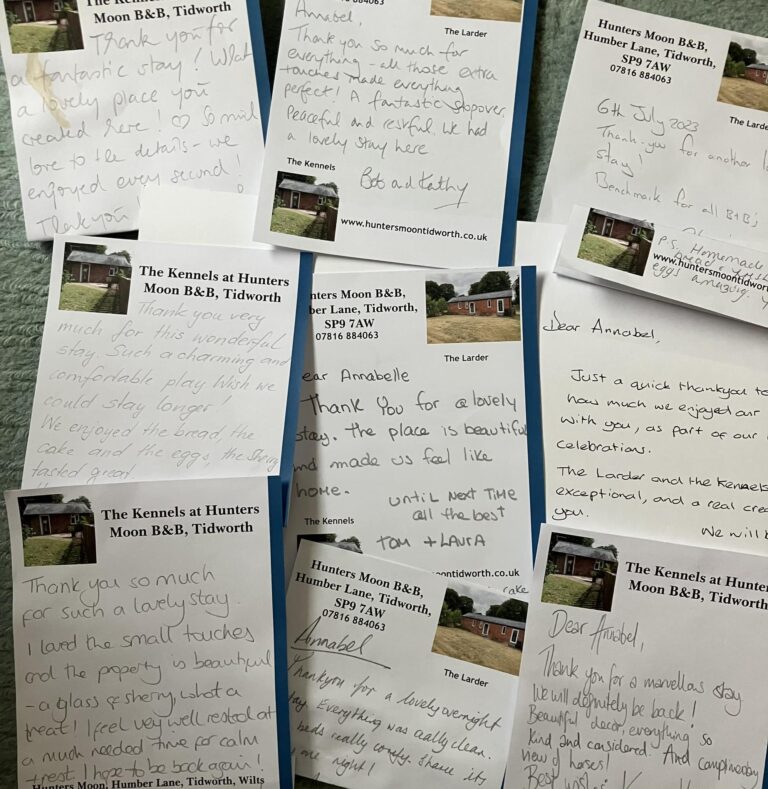 The Kennels
Moon B&B, Tidworth
Thank you for
a fantastic stay! What
a lovely place you
created here! ♡ So much
love to the details - we
enjoyed every second!
Thank you!
Annabel,
Thank you so much for
everything - all those extra
touches made everything
perfect! A fantastic stopover.
Peaceful and restful. We had
a lovely stay here
Bob and Kathy
The Larder
The Kennels
www.huntersmoontidworth.co.uk
Hunters Moon B&B,
Humber Lane, Tidworth,
SP9 7AW
07816 884063
The Larder
6th July 2023
Thank-you for another
stay!
Benchmark for all B+B's
P.S. Homemade
eggs amazing
The Kennels at Hunters
Moon B&B, Tidworth
Thank you very
much for this wonderful
stay. Such a charming and
comfortable play Wish we
could stay longer!
We enjoyed the bread, the
cake and the eggs, the Sherry
tasted great.
nters Moon B&B,
ber Lane, Tidworth,
SP9 7AW
07816 884063
The Larder
ear Annabelle
Thank you for a lovely
stay. The place is beautiful
nd made us feel like
home.
until next time
all the best
Tom + Laura
The Kennels
ontidworth.co.uk
Dear Annabel,
Just a quick thankyou to
how much we enjoyed our
with you, as part of our
celebrations.
The Larder and the Kennels
exceptional, and a real cre
you.
We will b
The Kennels at Hunters
Moon B&B, Tidworth
Thank you so much
for such a lovely stay.
I loved the small touches
and the property is beautiful
- a glass of sherry, what a
treat! I feel very well rested at
a much needed time for calm
+ rest. I hope to be back again!
Hunters Moon, Humber Lane, Tidworth, Wilts
Hunters Moon B&B,
Humber Lane, Tidworth,
SP9 7AW
07816 884063
The Larder
Annabel
Thankyou for a lovely overnight
stay. Everything was really clean.
beds really comfy. Shame its
one night!
The Kennels at Hunters
Moon B&B, Tidworth
Dear Annabel,
Thank you for a marvellous stay
We will definitely be back!
Beautiful decor, everything so
kind and considered. And complimentary
view of horses!
Best wishes